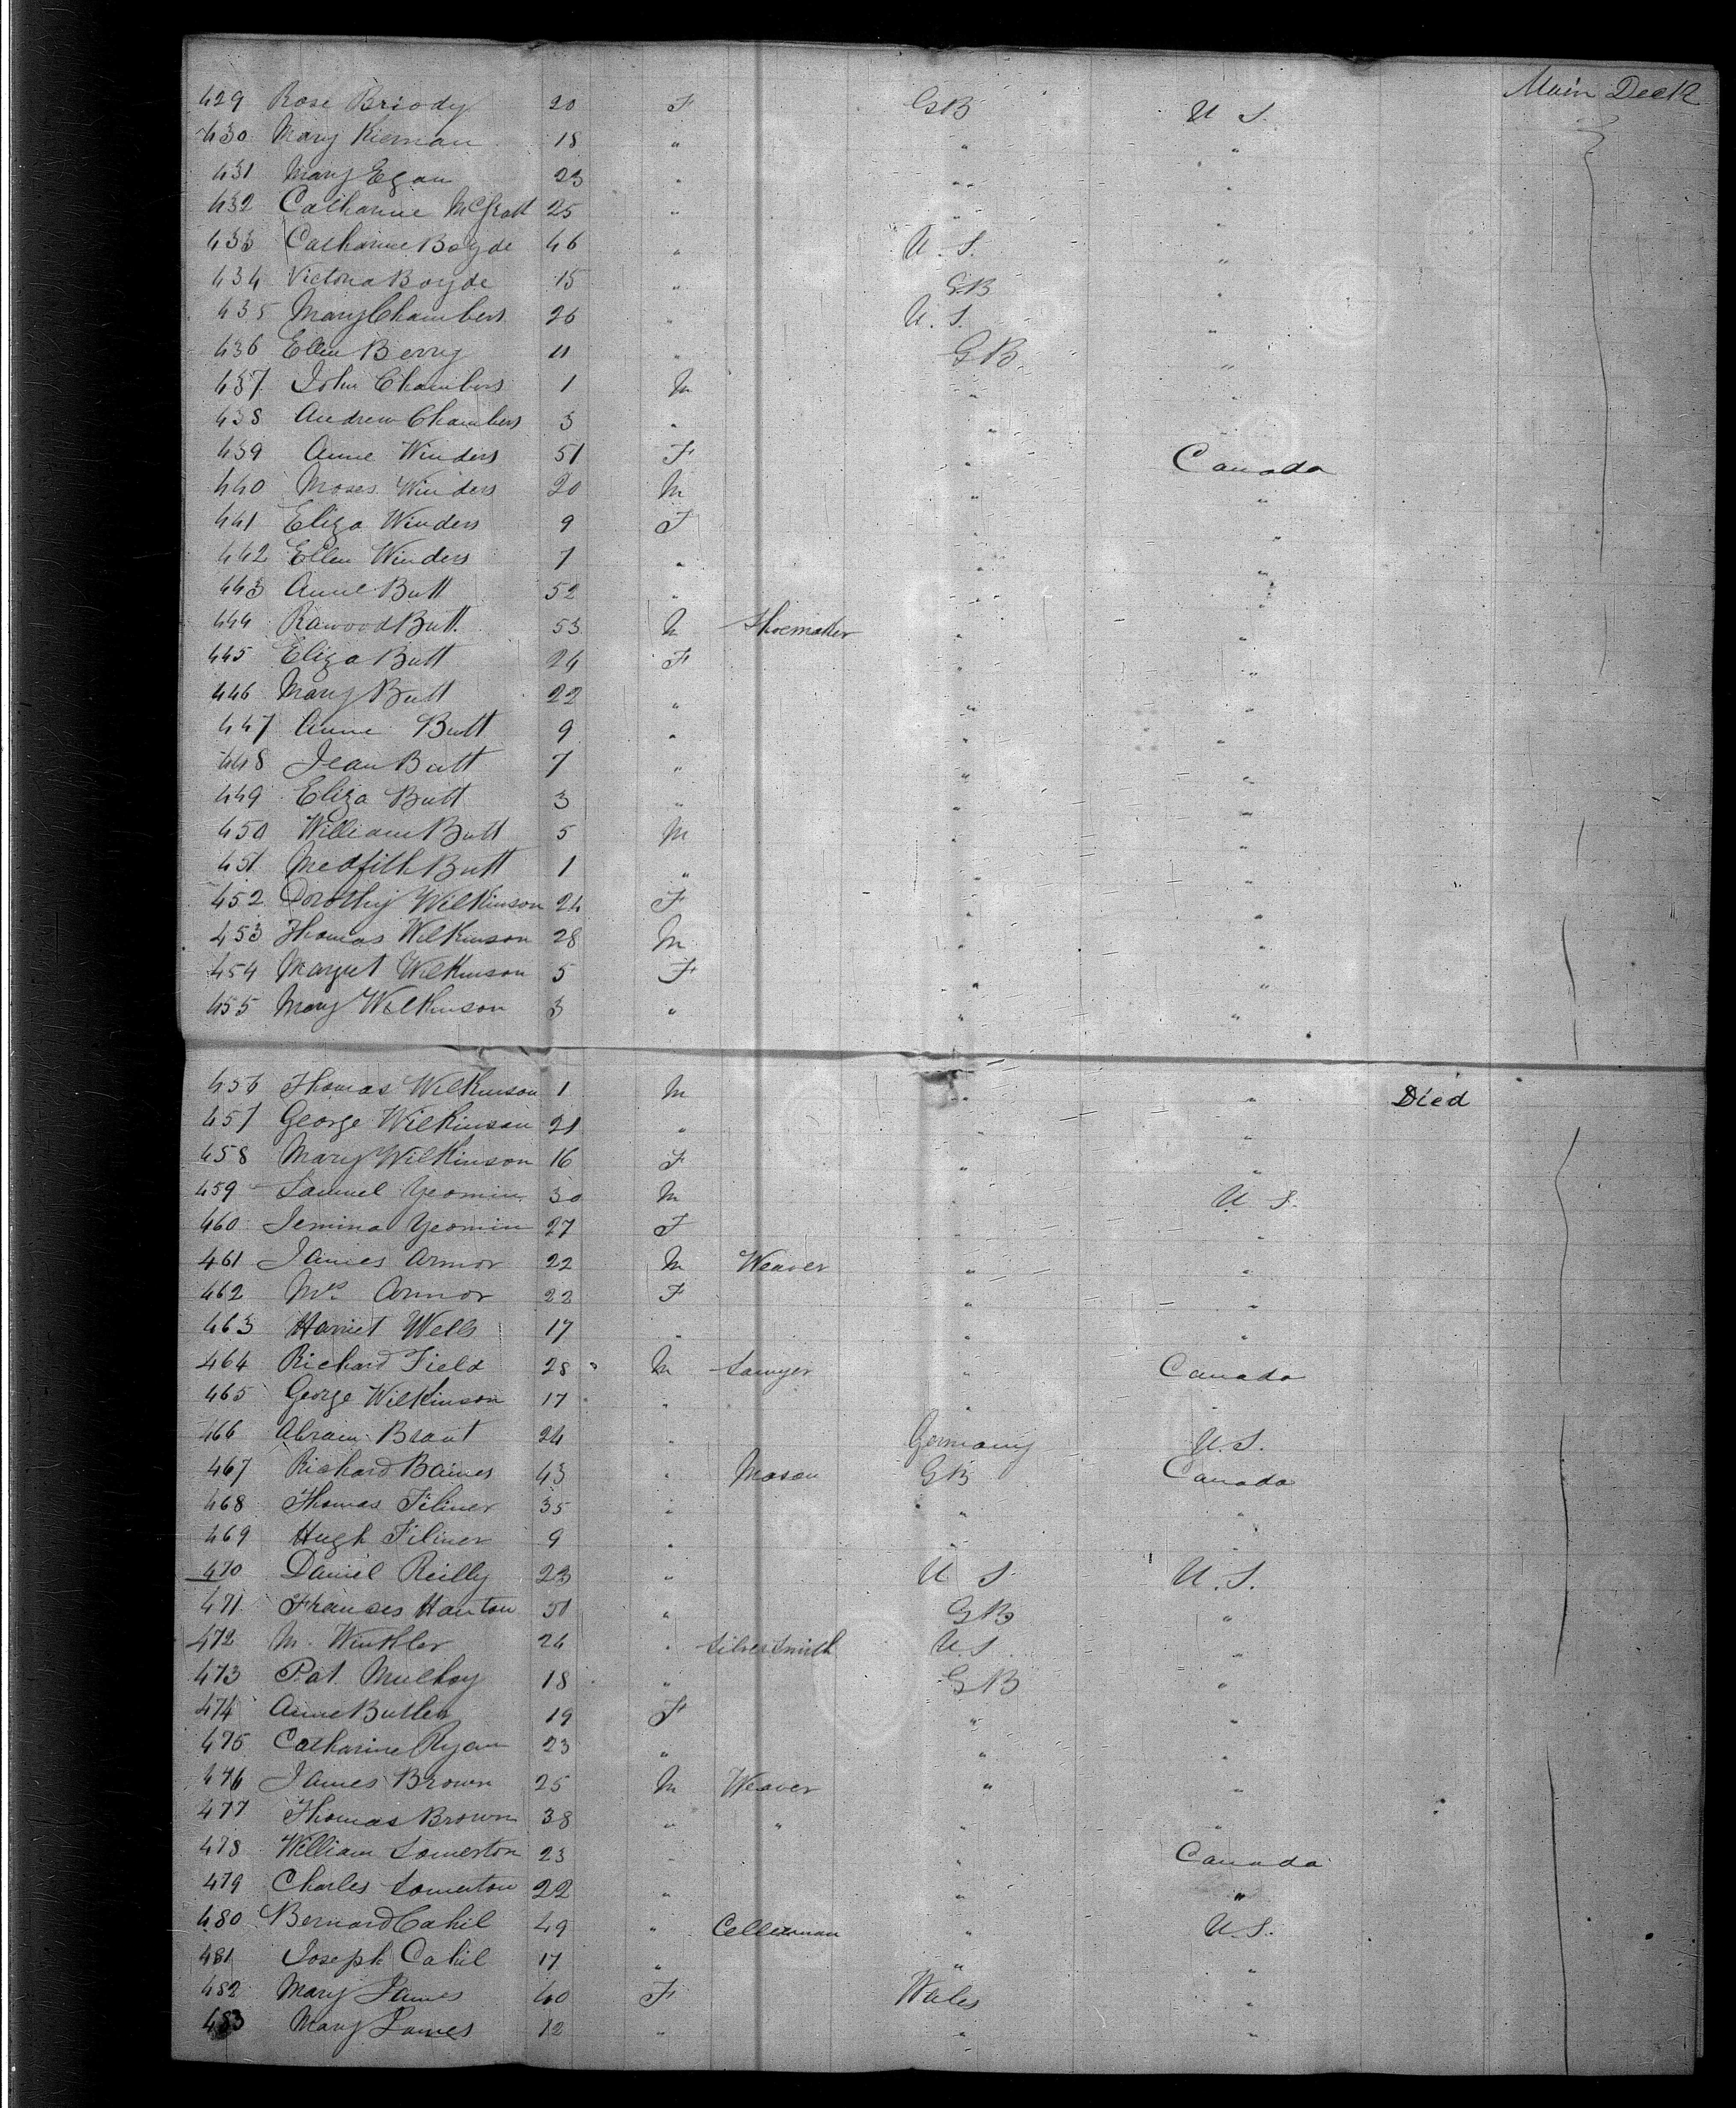 Main Deck
429 Rose Briody 20 F GB U S.
430 Mary Kiernan 18 " " "
431 Mary Egan 23 " " "
432 Catharine McGratt 25 " " "
433 Catharine Boyde 46 " U. S. "
434 Victoria Boyde 15 " GB "
435 Mary Chambers 26 " U. S. "
436 Ellen Berry 11 " GB "
437 John Chambers 1 M " "
438 Andrew Chambers 3 " " "
439 Anne Winders 51 F " Canada
440 Moses Winders 20 M " "
441 Eliza Winders 9 F " "
442 Ellen Winders 7 " " "
443 Anne Butt 52 " " "
444 Rawood Butt 53 M Shoemaker " "
445 Eliza Butt 24 F " "
446 Mary Butt 22 " " "
447 Anne Butt 9 " " "
448 Jean Butt 7 " " "
449 Eliza Butt 3 " " "
450 William Butt 5 M " "
451 Butt 1 " " "
452 Dorothy Wilkinson 24 F " "
453 Thomas Wilkinson 28 M " "
454 Margret Wilkinson 5 F " "
455 Mary Wilkinson 3 " " "
456 Thomas Wilkinson 1 M " " Died
457 George Wilkinson 21 " " "
458 Mary Wilkinson 16 F " "
459 Samuel Yeomin 30 M " U. S.
460 Jemina Yeomin 27 F " "
461 James Armor 22 M Weaver " "
462 Mrs Armor 22 F " "
463 Harriet Wells 17 " " "
464 Richard Field 28 M Sawyer " Canada
465 George Wilkinson 17 " " "
466 Abram Brant 24 " Germany U. S.
467 Richard Baines 43 " Mason GB Canada
468 Thomas Filmer 35 " " "
469 Hugh Filmer 9 " " "
470 Daniel Reilly 23 " U S U. S.
471 Frances Hanton 51 " GB "
472 M. Winkler 26 " Silversmith U. S. "
473 Pat Mulhoy 18 " GB "
474 Anne Butler 19 F " "
475 Catharine Ryan 23 " " "
476 James Brown 25 M Weaver " "
477 Thomas Brown 38 " " " "
478 William Somerton 23 " " Canada
479 Charles Somerton 22 " " "
480 Bernard Cahil 49 " Cellerman " U. S.
481 Joseph Cahil 17 " " "
482 Mary James 40 F Wales "
483 Mary James 12 " " "